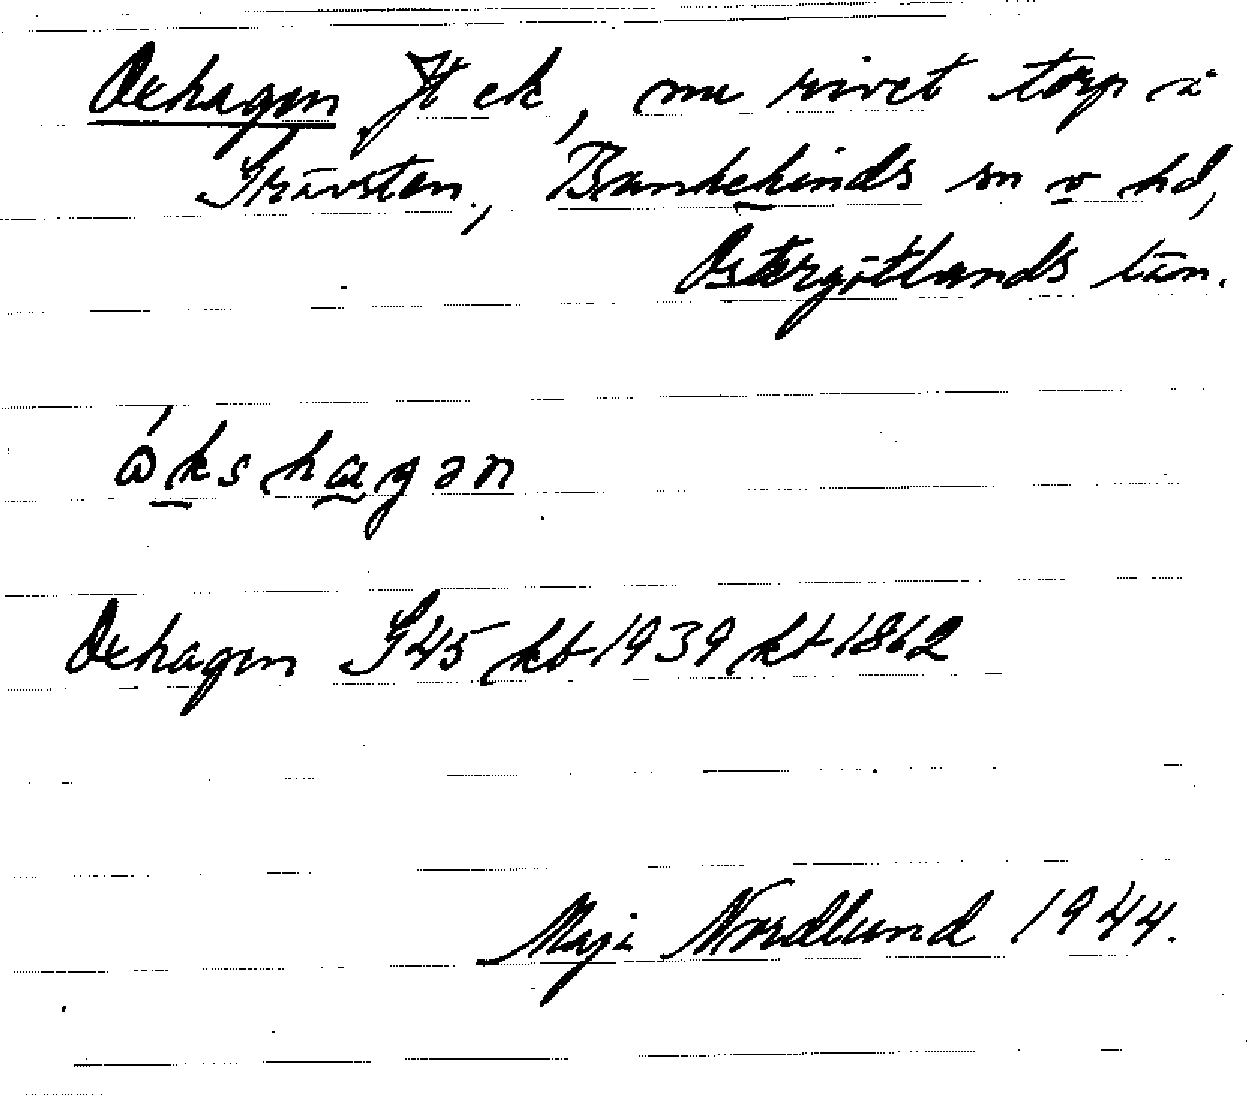 Oxhagen Jt ek, nu rivet torp i
Grävsten, Bankekinds sn o hd,
Östergötlands län.
òkshagən
Oxhagen G45 kb 1939 kb 1862
Maji Nordlund 1944.